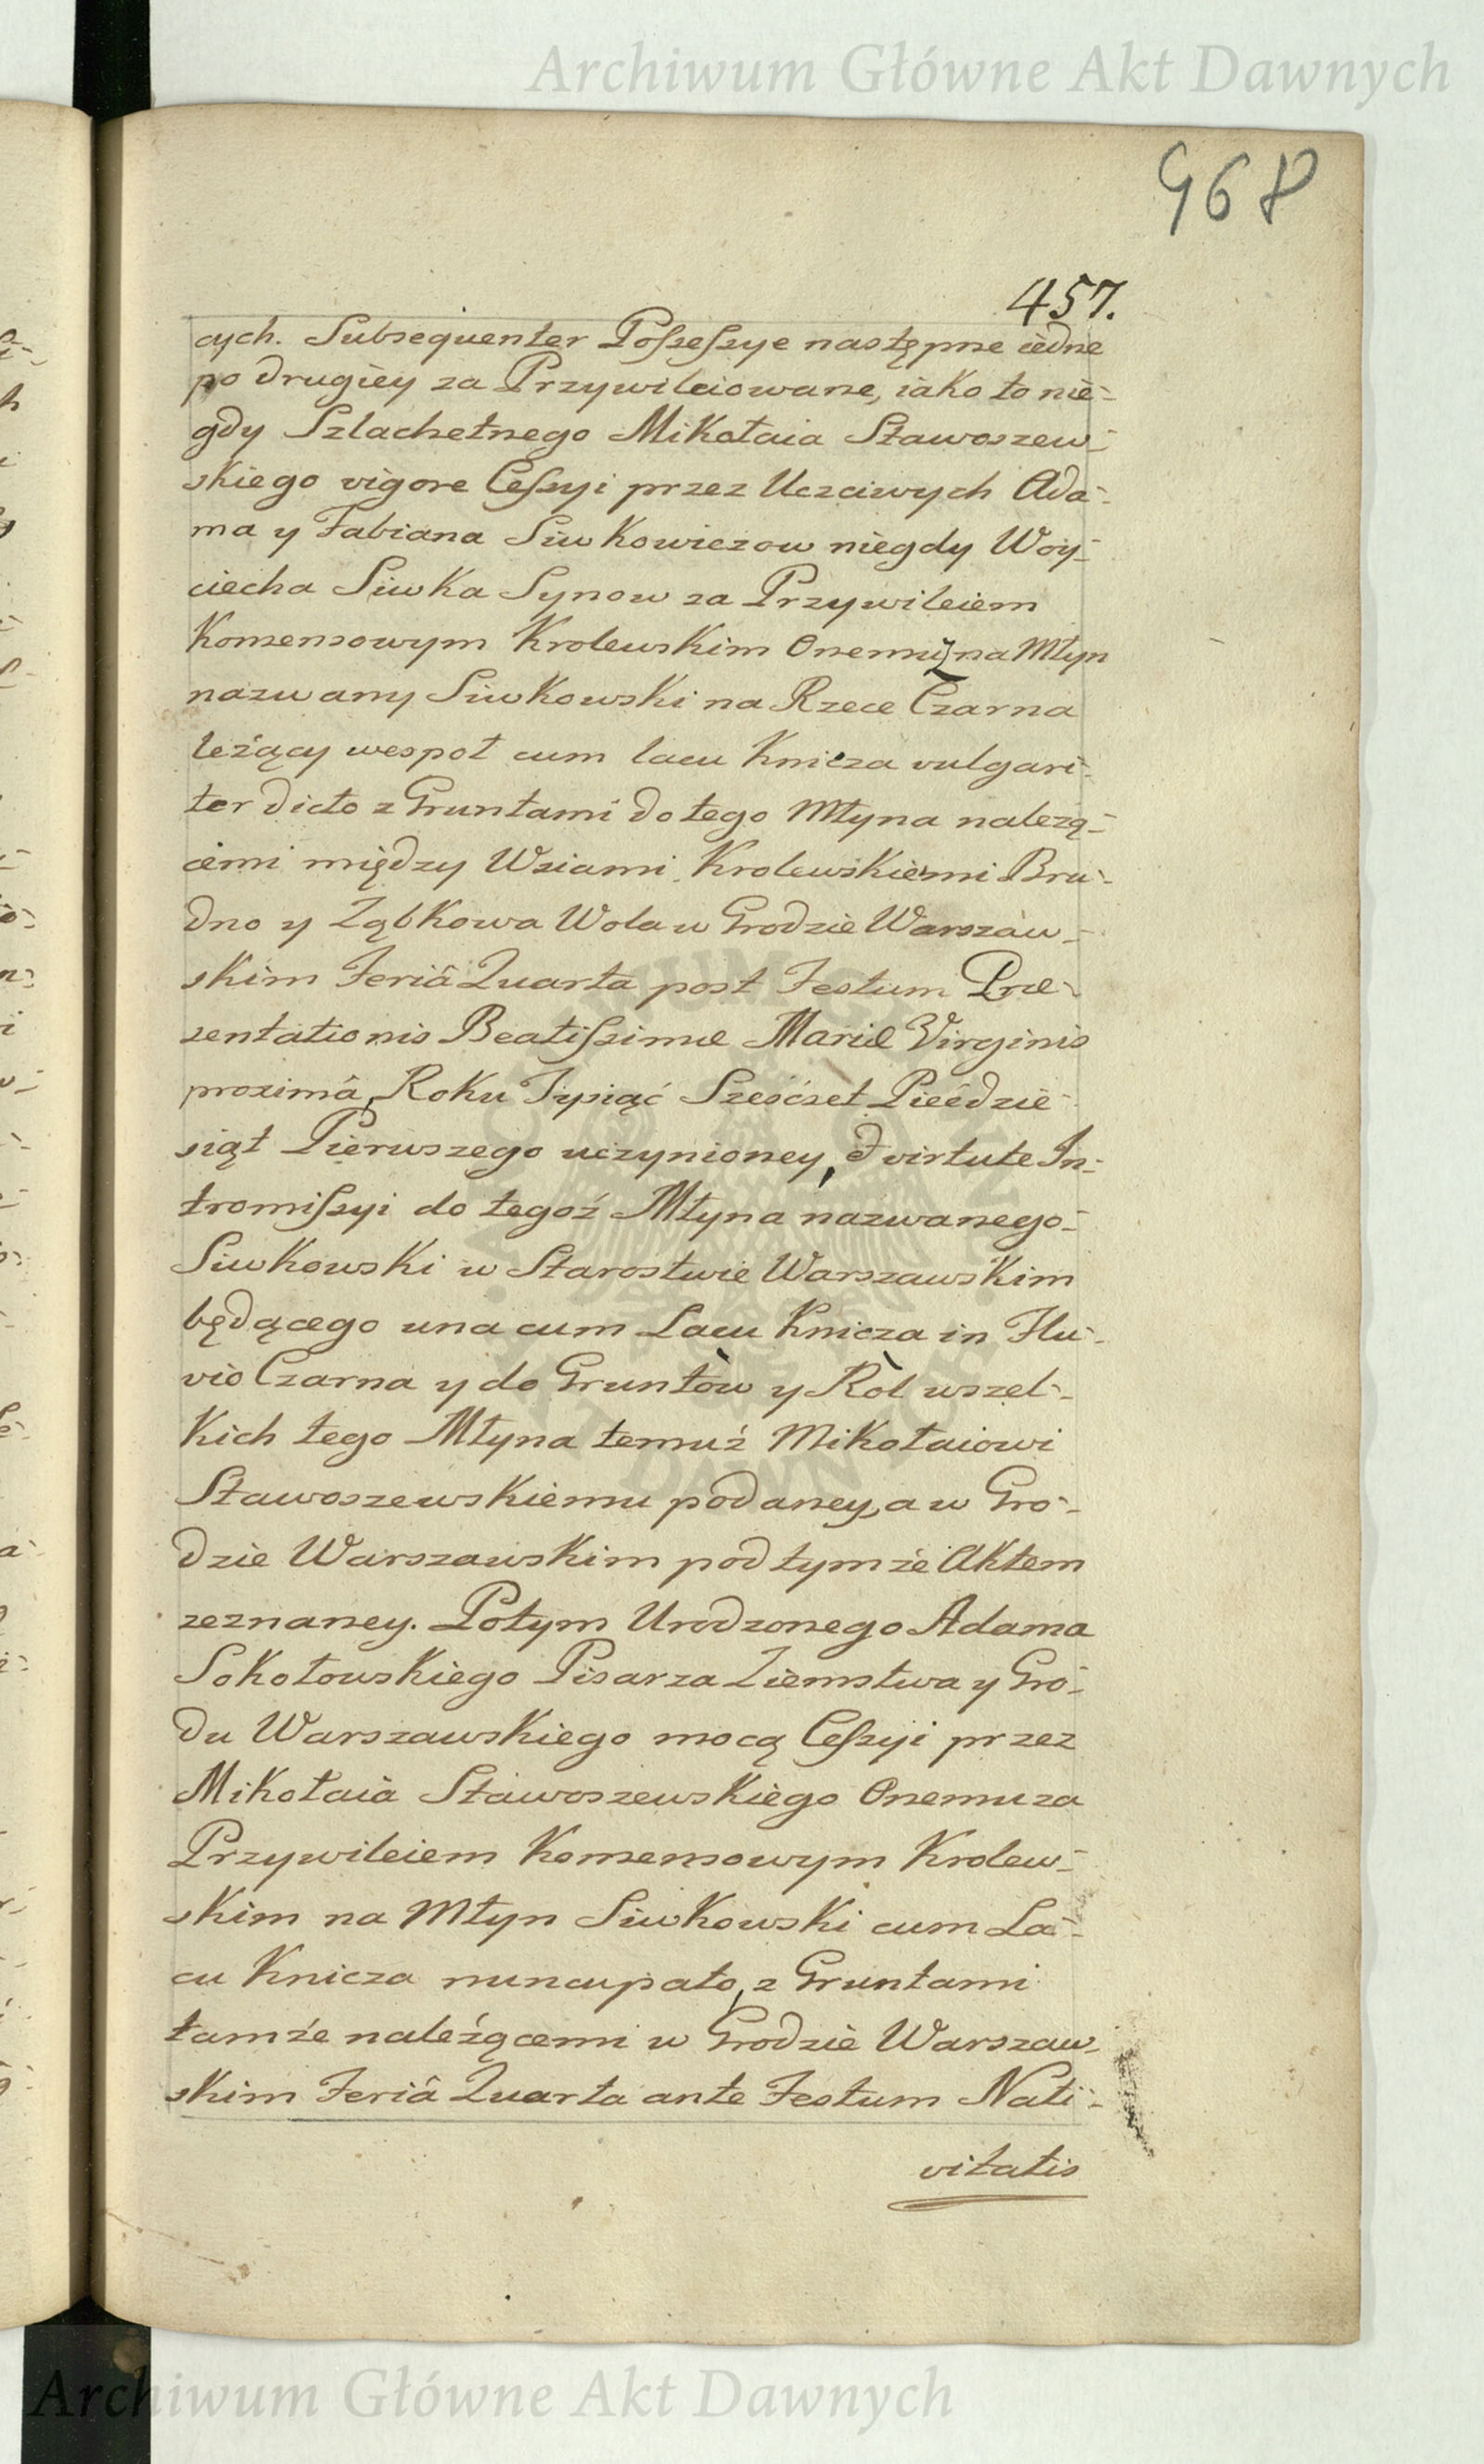 Archiwum Główne Akt Dawnych
968
457.
cych. Subsequenter Poſseſsye następne iedne
po drugiey za Przywileiowane, iako to nie-
gdy Szlachetnego Mikołaia Stawoszew-
skiego vigore Ceſsyi przez Uczciwych Ada-
ma y Fabiana Siwkowiczow niegdy Woy-
ciecha Siwka Synow za Przywileiem
Konsensowym Krolewskim Onemuż na Młyn
nazwany Siwkowski na Rzece Czarna
leżący wespoł cum lacu Knicza vulgari-
ter dicto z Gruntami do tego Młyna należą-
cemi między Wsiami Krolewskiemi Bru-
dno y Ząbkowa Wola w Grodzie Warszaw-
skim Feriâ Quarta post Festum Præ-
sentationis Beatiſsimæ Mariæ Virginis
proximâ, Roku Tysiąć Sześćset Pięćdzie-
siąt Pierwszego uczynioney, & virtute In-
tromiſsyi do tegoż Młyna nazwanego-
Siwkowski w Starostwie Warszawskim
będącego una cum Lacu Knicza in Flu-
vio Czarna y do Gruntòw y Ròl wszel-
kich tego Młyna temuż Mikołaiowi
Stawoszewskiemu podaney, a w Gro-
dzie Warszawskim pod tymże Aktem
zeznaney. Potym Urodzonego Adama
Sokołowskiego Pisarza Ziemstwa y Gro-
du Warszawskiego mocą Ceſsyi przez
Mikołaia Stawoszewskiego Onemu za
Przywileiem Konsensowym Krolew-
skim na Młyn Siwkowski cum La-
cu Knicza nuncupato, z Gruntami
tamże należącemi w Grodzie Warszaw-
skim Feriâ Quarta ante Festum Nati-
vitatis
Archiwum Główne Akt Dawnych